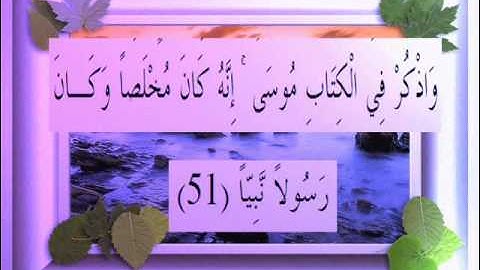 وَاذْكُرْ فِي الْكِتَابِ مُوسَى ۚ إِنَّهُ كَانَ مُخْلَصاً وَكَـــانَ
رَسُولاً نَّبِيًّا (51)